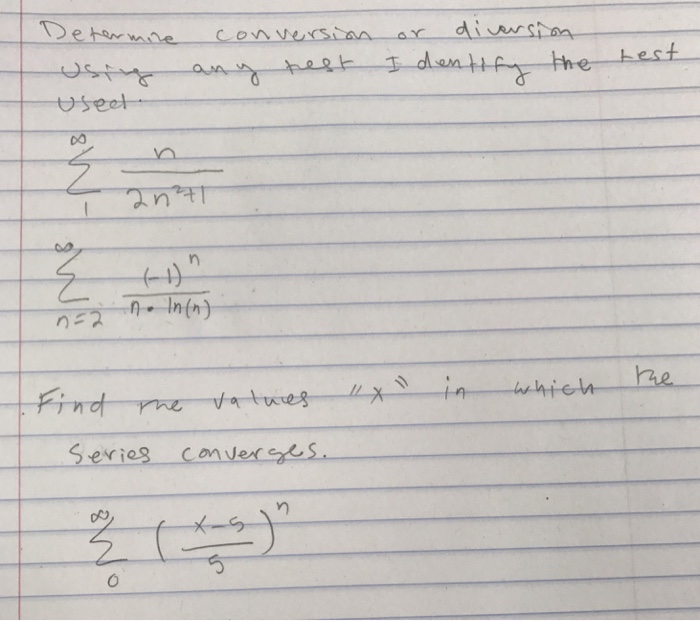 Determine conversion or diversion
Using any test Identify the test
Used.
∞
Σ n / 2n²+1
1
∞
Σ (-1)ⁿ / n • ln(n)
n=2
Find the values "x" in which the
Series converges.
∞
Σ (x-5 / 5)ⁿ
0